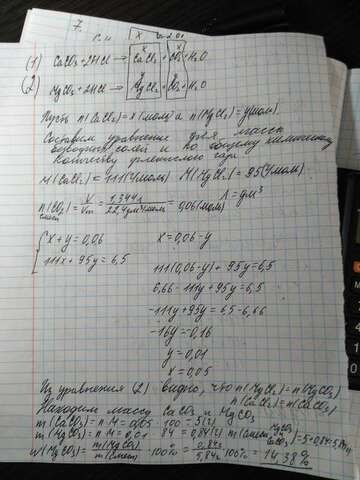 7.
(1) CaCO₃ + 2HCl → CaCl₂ + CO₂ + H₂O
(2) MgCO₃ + 2HCl → MgCl₂ + CO₂ + H₂O
Пусть n(CaCl₂) = x (моль) а n(MgCl₂) = y (моль).
Составим уравнение для массы
безводных солей и по общему химическому
количеству углекислого газа
M(CaCl₂) = 111 (г/моль) M(MgCl₂) = 95 (г/моль)
n(CO₂) смеси = V/Vm = 1,344 л / 22,4 дм³/моль = 0,06 (моль) л = дм³
x + y = 0,06 x = 0,06 - y
111x + 95y = 6,5
111(0,06 - y) + 95y = 6,5
6,66 - 111y + 95y = 6,5
-111y + 95y = 6,5 - 6,66
-16y = -0,16
y = 0,01
x = 0,05
Из уравнения (2) видно, что n(MgCl₂) = n(MgCO₃)
n(CaCl₂) = n(CaCO₃)
Находим массу CaCO₃ и MgCO₃
m(CaCO₃) = n·M = 0,05 · 100 = 5 (г)
m(MgCO₃) = n·M = 0,01 · 84 = 0,84 (г) m(смеси MgCO₃ CaCO₃) = 5 + 0,84 = 5,84 г
w(MgCO₃) = m(MgCO₃)/m(смеси) · 100% = 0,84г/5,84г · 100% = 14,38%